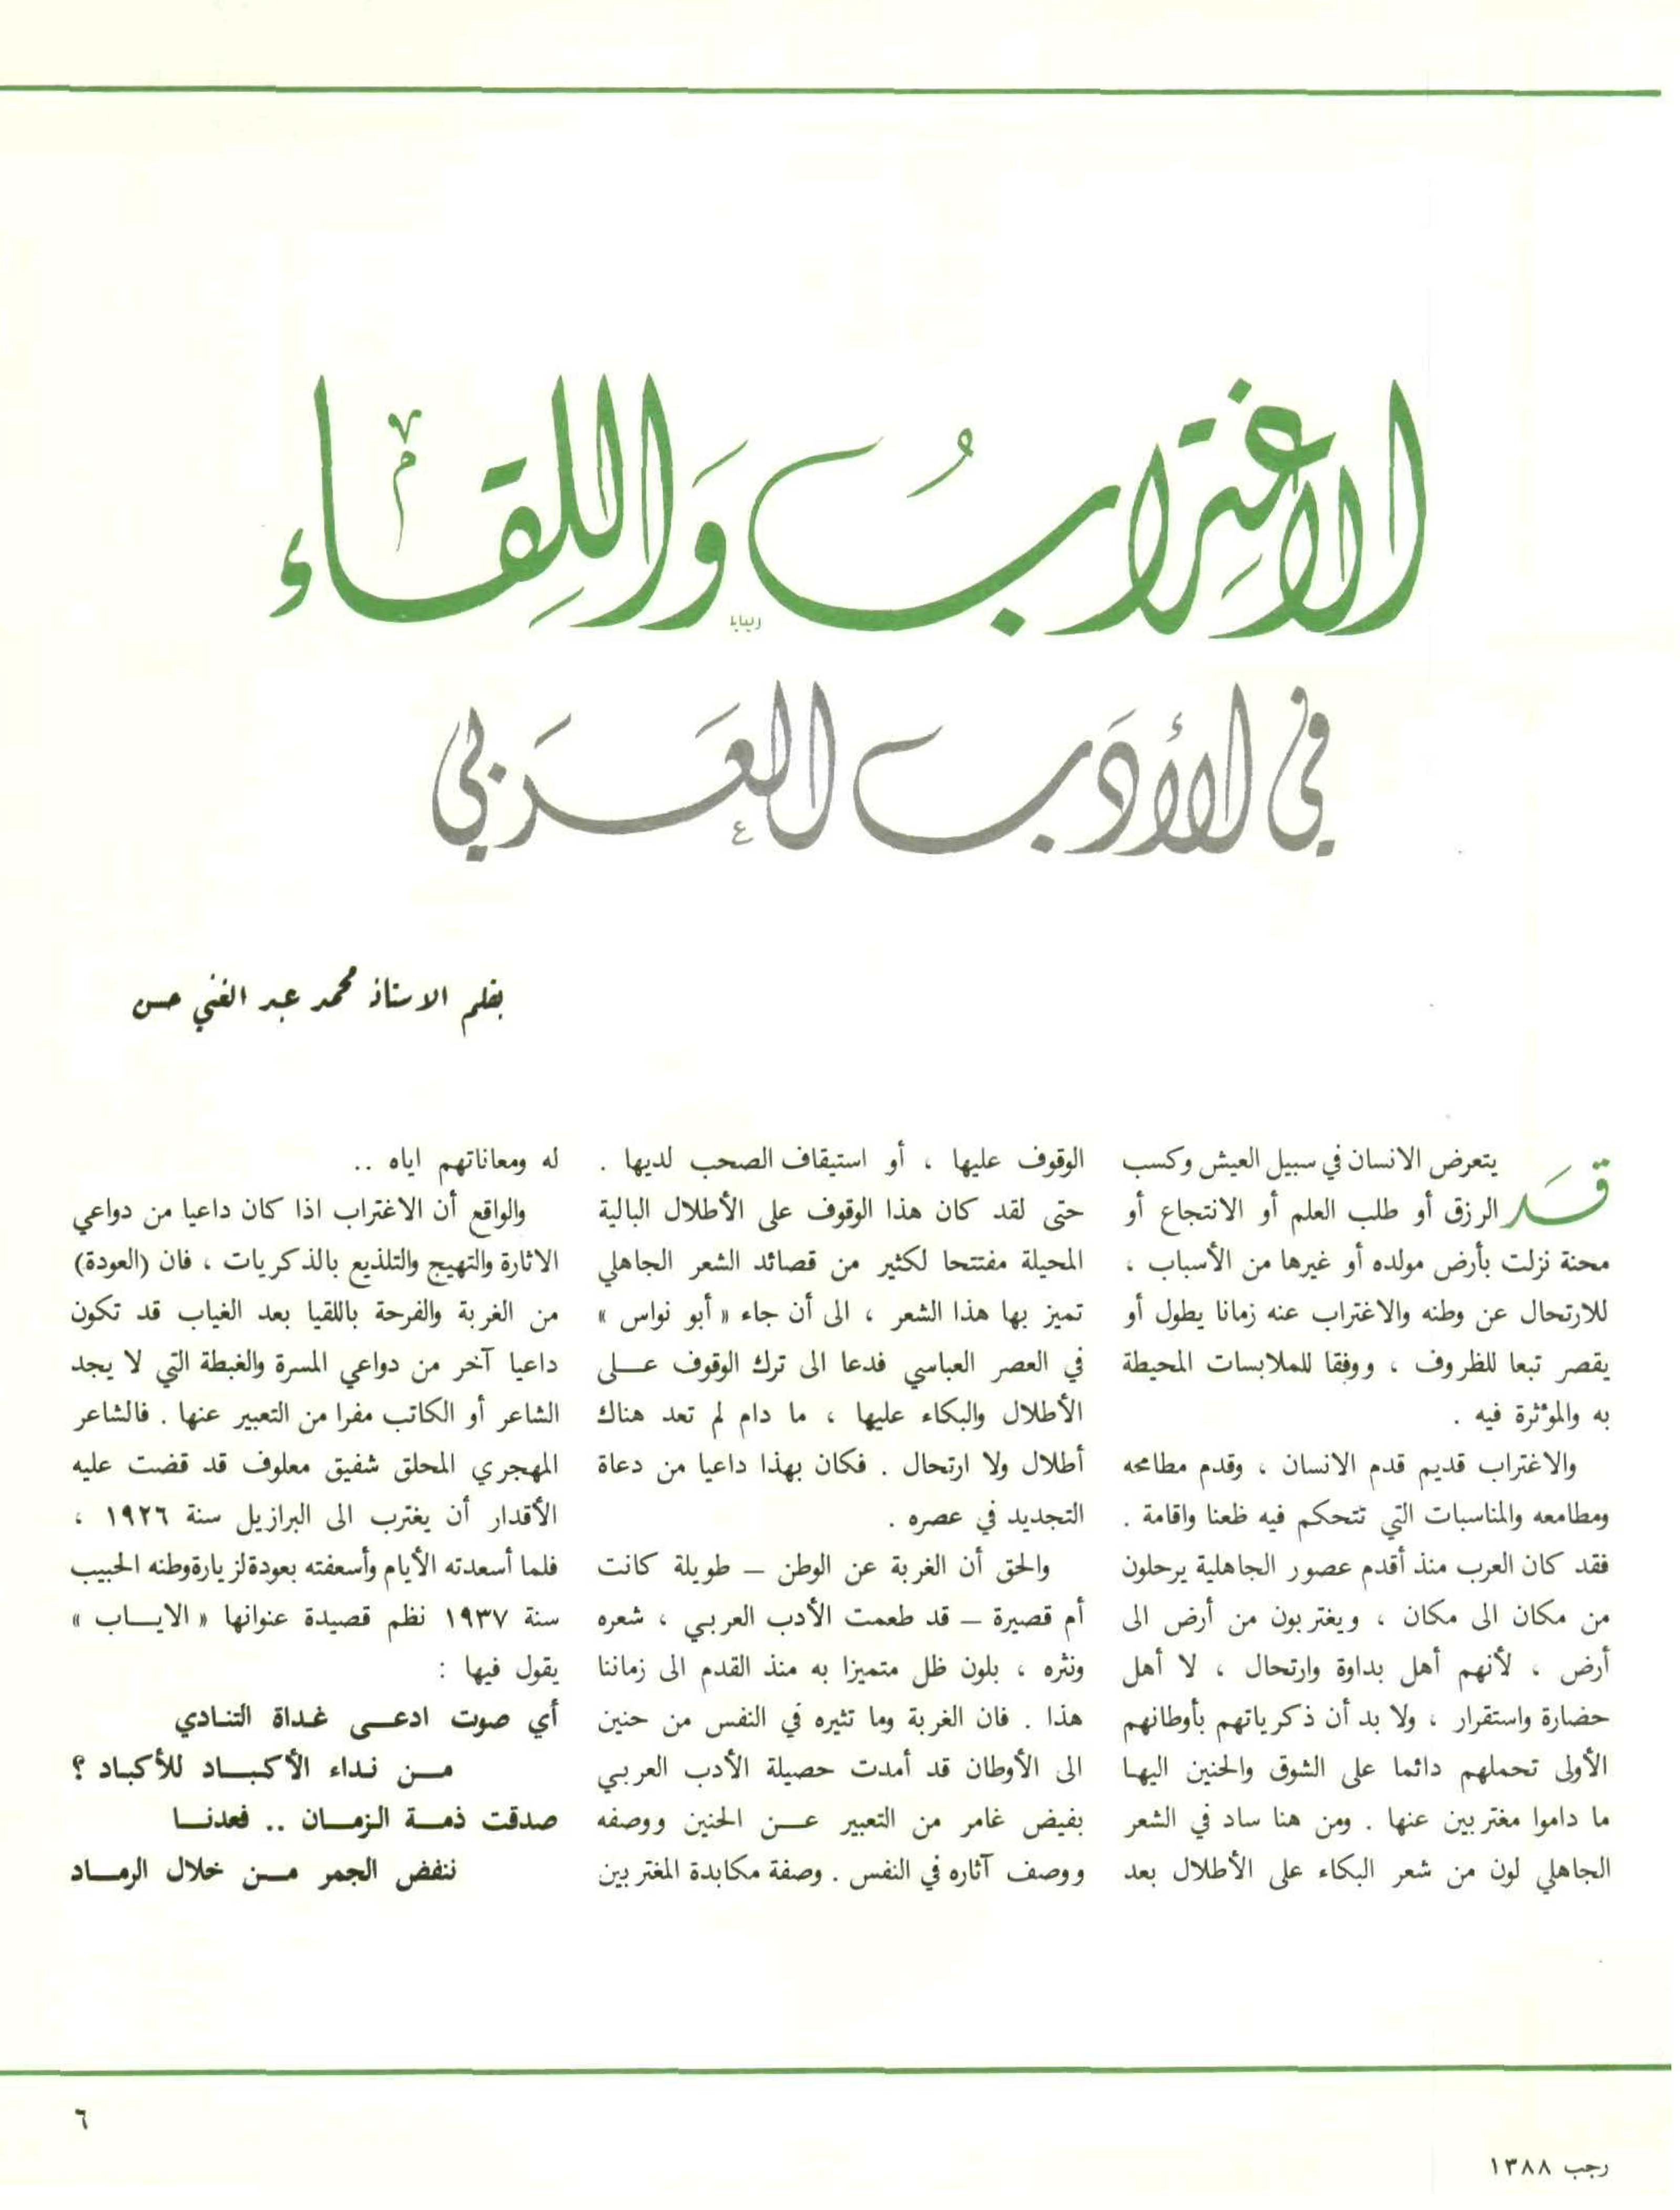 الاغترابُ وَاللِقاء
في الأدَب العَربي
بقلم الاستاذ محمد عبد الغني حسن
قَد يتعرض الانسان في سبيل العيش وكسب
الرزق أو طلب العلم أو الانتجاع أو
محنة نزلت بأرض مولده أو غيرها من الأسباب ،
للارتحال عن وطنه والاغتراب عنه زمانا يطول أو
يقصر تبعا للظروف ، ووفقا للملابسات المحيطة
به والمؤثرة فيه .
والاغتراب قديم قدم الانسان ، وقدم مطامحه
ومطامعه والمناسبات التي تتحكم فيه ظعنا واقامة .
فقد كان العرب منذ أقدم عصور الجاهلية يرحلون
من مكان الى مكان ، ويغتربون من أرض الى
أرض ، لأنهم أهل بداوة وارتحال ، لا أهل
حضارة واستقرار ، ولا بد أن ذكرياتهم بأوطانهم
الأولى تحملهم دائما على الشوق والحنين اليها
ما داموا مغتربين عنها . ومن هنا ساد في الشعر
الجاهلي لون من شعر البكاء على الأطلال بعد
الوقوف عليها ، أو استيقاف الصحب لديها .
حتى لقد كان هذا الوقوف على الأطلال البالية
المحيلة مفتتحا لكثير من قصائد الشعر الجاهلي
تميز بها هذا الشعر ، الى أن جاء « أبو نواس »
في العصر العباسي فدعا الى ترك الوقوف عـلى
الأطلال والبكاء عليها ، ما دام لم تعد هناك
أطلال ولا ارتحال . فكان بهذا داعيا من دعاة
التجديد في عصره .
والحق أن الغربة عن الوطن – طويلة كانت
أم قصيرة – قد طعمت الأدب العربي ، شعره
ونثره ، بلون ظل متميزا به منذ القدم الى زماننا
هذا . فان الغربة وما تثيره في النفس من حنين
الى الأوطان قد أمدت حصيلة الأدب العربي
بفيض غامر من التعبير عـن الحنين ووصفه
ووصف آثاره في النفس . وصفة مكابدة المغتربين
له ومعاناتهم اياه ..
والواقع أن الاغتراب اذا كان داعيا من دواعي
الاثارة والتهيج والتلذيع بالذكريات ، فان (العودة)
من الغربة والفرحة باللقيا بعد الغياب قد تكون
داعيا آخر من دواعي المسرة والغبطة التي لا يجد
الشاعر أو الكاتب مفرا من التعبير عنها . فالشاعر
المهجري المحلق شفيق معلوف قد قضت عليه
الأقدار أن يغترب الى البرازيل سنة ١٩٢٦ ،
فلما أسعدته الأيام وأسعفته بعودة لزيارة وطنه الحبيب
سنة ١٩٣٧ نظم قصيدة عنوانها « الايـاب »
يقول فيها :
أي صوت ادعـى غـداة التنـادي
مـن نـداء الأكـبـاد للأكبـاد ؟
صدقت ذمـة الزمـان .. فعدنـا
ننفض الجمر مـن خلال الرمـاد
٦
رجب ١٣٨٨